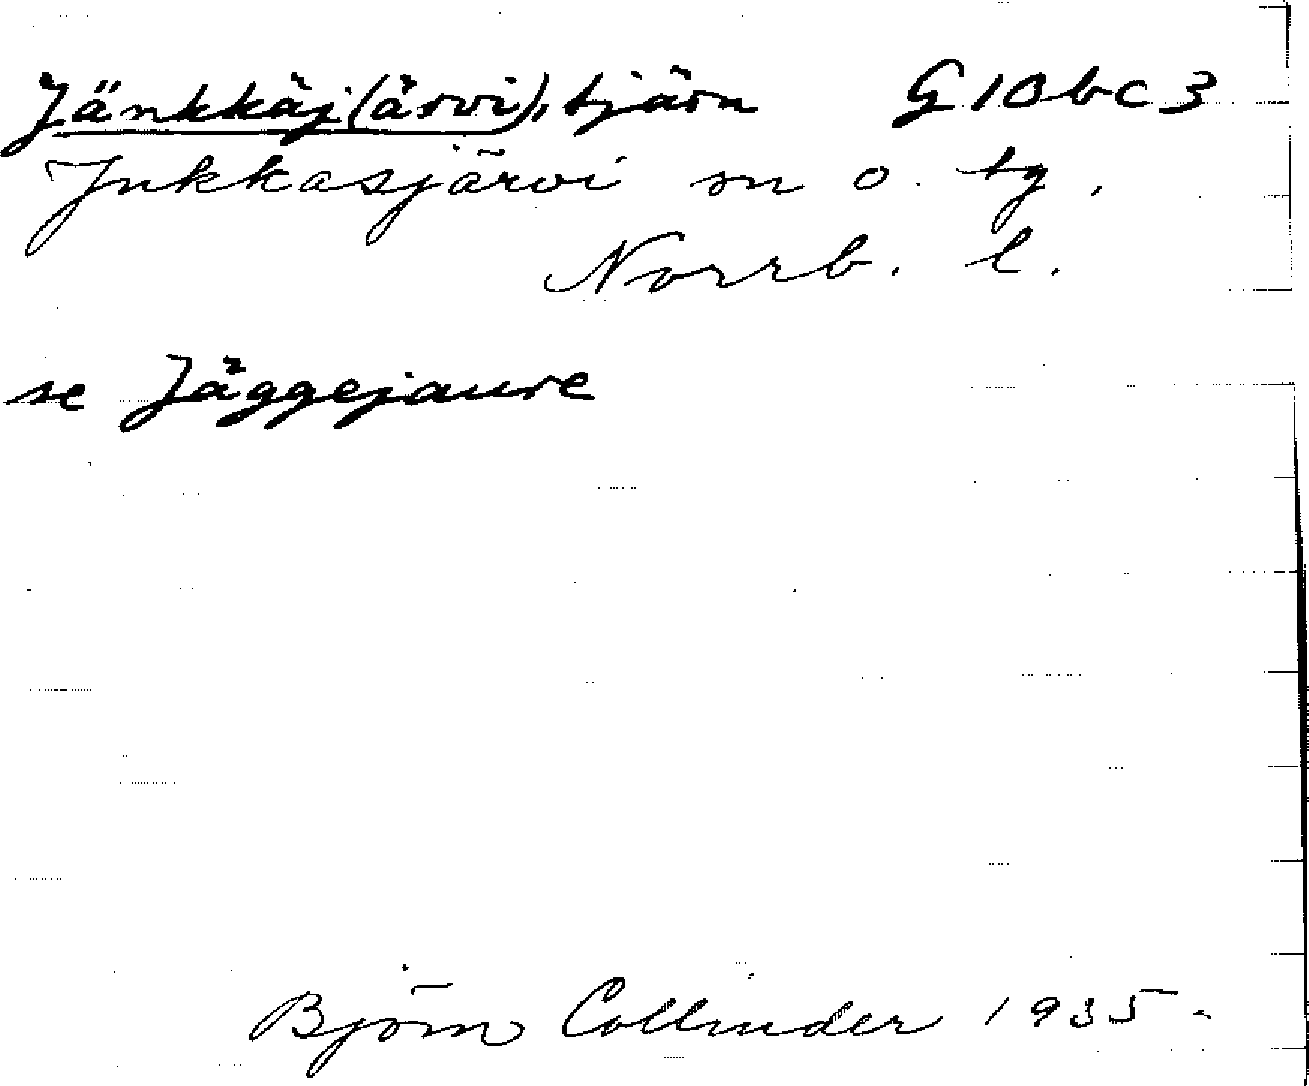 Jänkkäj(ärvi), tjärn G 10 b c 3
Jukkasjärvi sn o. tg.
Norrb. l.
se Jäggejaure
Björn Collinder 1935.